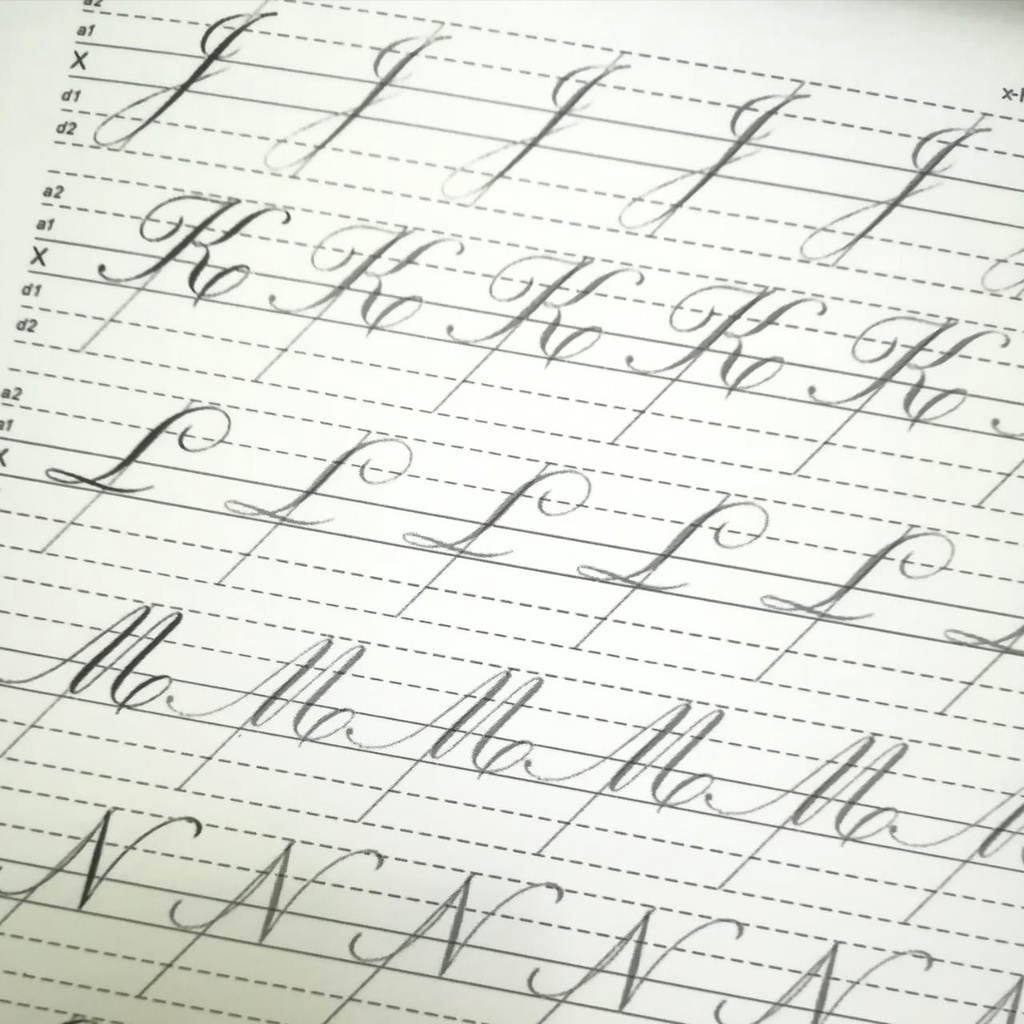 a2
a1
X
d1
d2
J J J J J
a2
a1
X
d1
d2
K K K K K
a2
a1
X
L L L L L
M M M M M
N N N N N